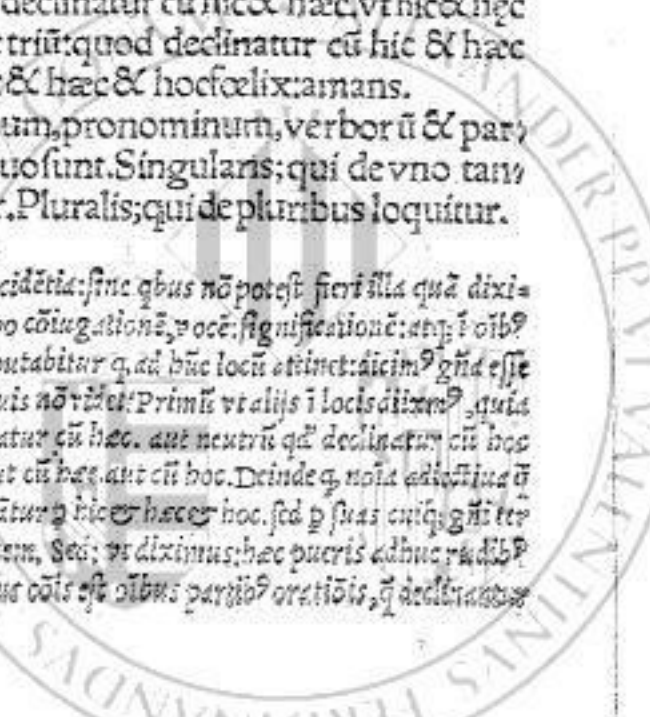 declinatur cū hic & hæc, vt hic & hęc
triū: quod declinatur cū hic & hæc
& hæc & hoc fœlix: amans.
um, pronominum, verborū & par,
uo sunt. Singularis; qui de vno tan,
r. Pluralis; qui de pluribus loquitur.
cidētia: sine qbus nō potest fieri illa quā dixi=
po cōiugationē, vocē: significationē: atq; ī oībꝰ
putabitur q, ad hūc locū attinet: dicimꝰ gn̄a esse
uis nō videt. Primū vt alijs ī locis diximꝰ, quia
atur cū hæc. aut neutrū qd' declinatur cū hoc
ut cū hæc. aut cū hoc. Deinde q, noīa adiectiua q̄
ātur p hic & hæc & hoc. sed p suas cuiq; gn̄i ter
em. Sed; vt diximus: hæc pueris adhuc rudibꝰ
us cōis est oībus partibꝰ oratiōis, q̄ declinantur
VALENTINVS FERDINANDVS